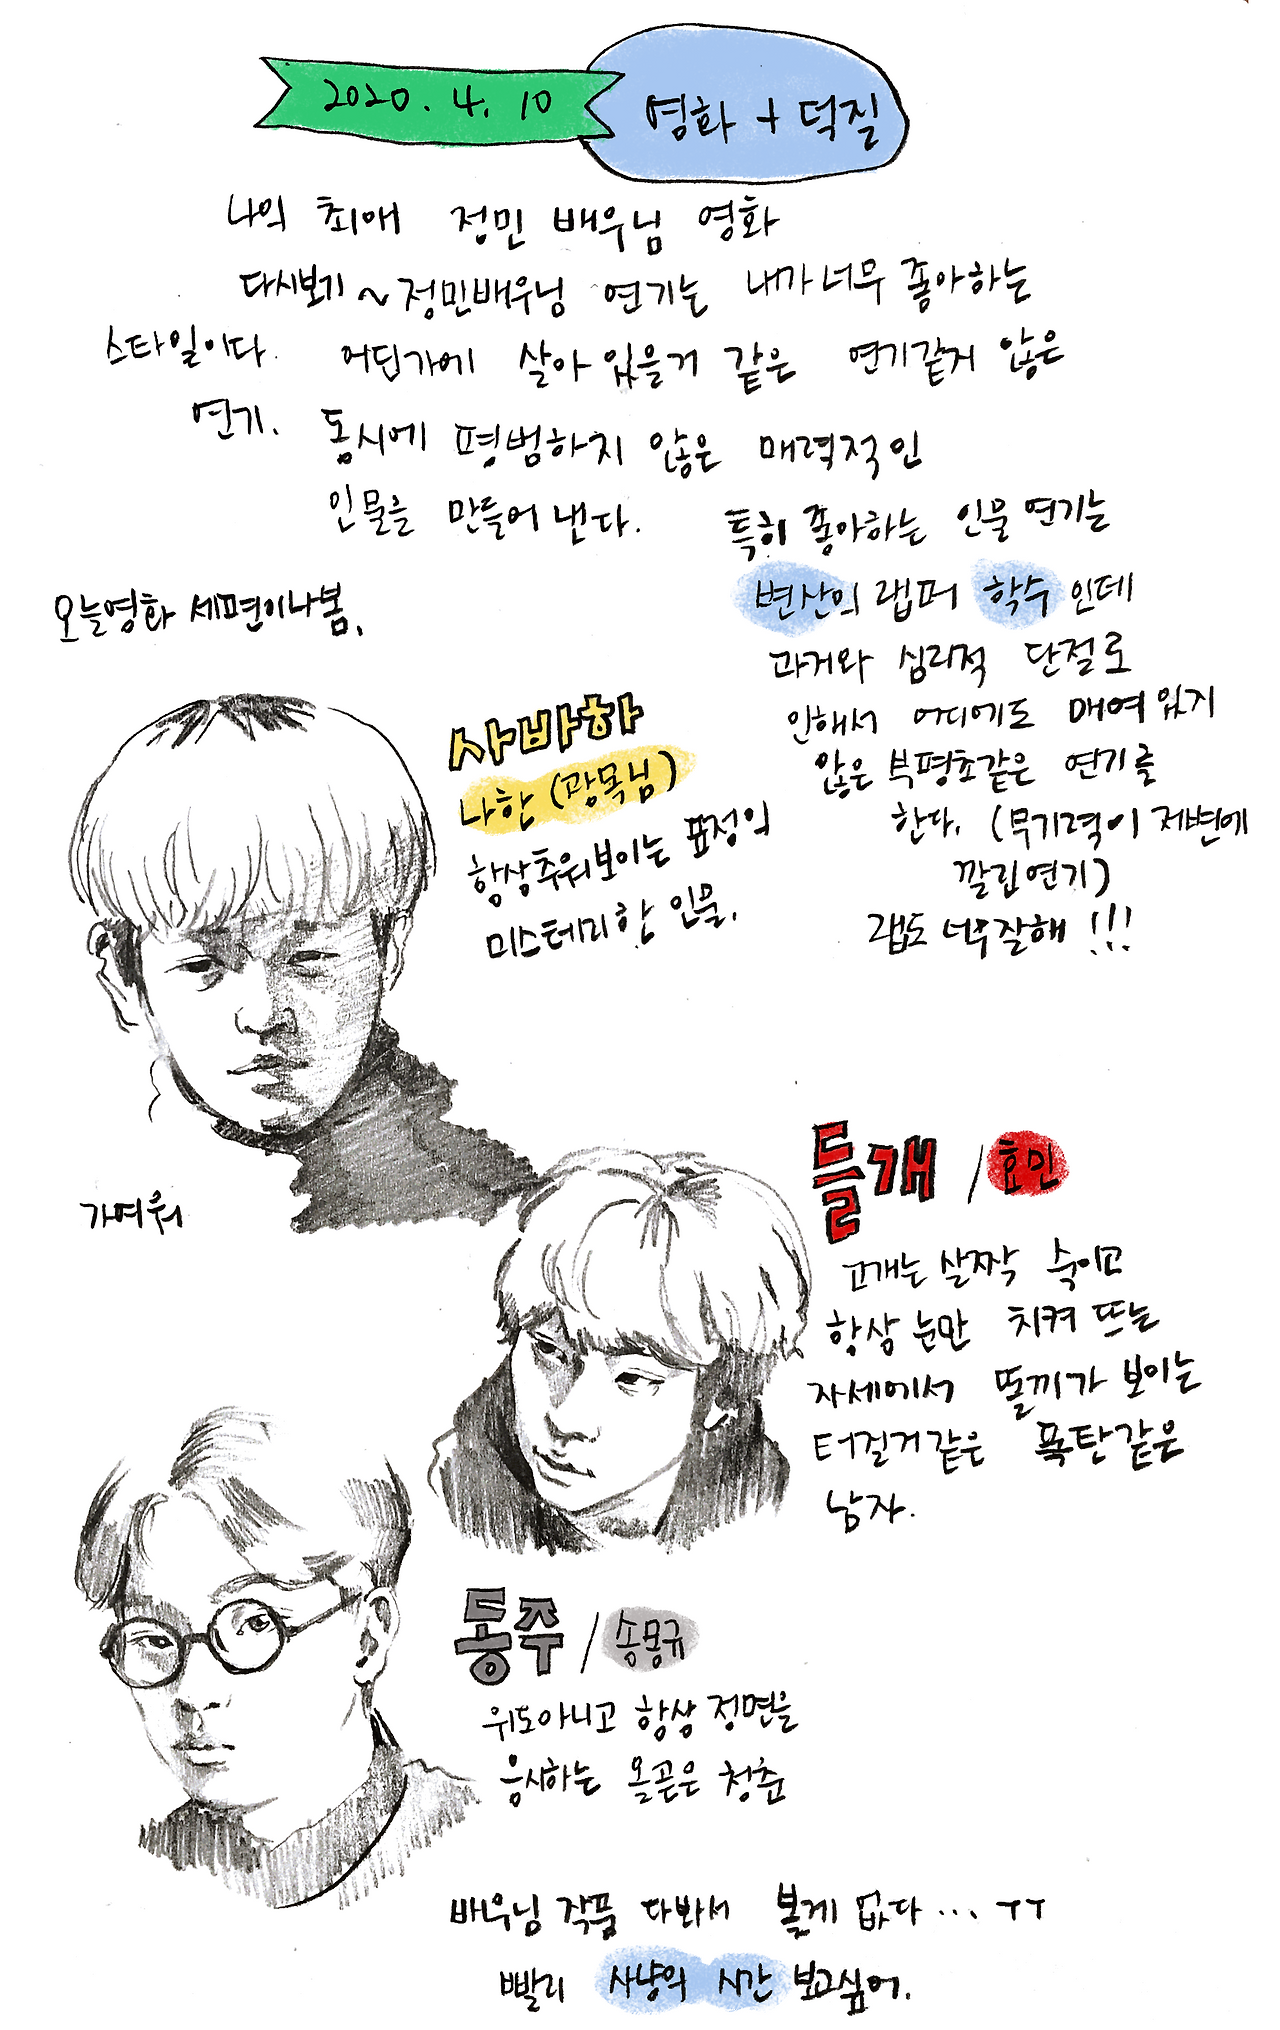 2020. 4. 10
영화 + 덕질
나의 최애 정민 배우님 영화
다시보기 ~ 정민배우님 연기는 내가 너무 좋아하는
스타일이다. 어딘가에 살아 있을거 같은 연기같지 않은
연기. 동시에 평범하지 않은 매력적인
인물을 만들어 낸다.
특히 좋아하는 인물 연기는
변산의 랩퍼 학수 인데
과거와 심리적 단절로
인해서 어디에도 매여 있지
않은 부평초같은 연기를
한다. (무기력이 저변에
깔린 연기)
랩도 너무잘해 !!!
오늘영화 세편이나봄.
사바하
나한 (광목님)
항상추워보이는 표정의
미스테리한 인물.
가여워
들개 / 효민
고개는 살짝 숙이고
항상 눈만 치켜 뜨는
자세에서 똘끼가 보이는
터질거같은 폭탄같은
남자.
동주 / 송몽규
위도아니고 항상 정면을
응시하는 올곧은 청춘
배우님 작품 다봐서 볼게 없다... ㅜㅜ
빨리 사냥의 시간 보고싶어.